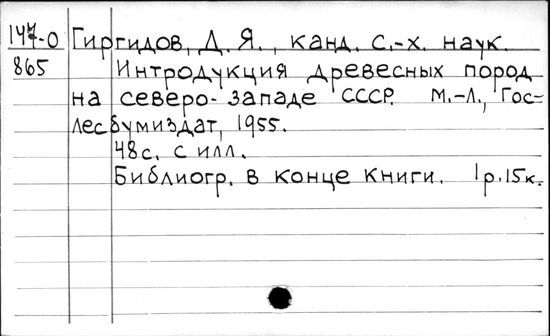 147-0 Гиргидов, Д. Я., канд. с.-х. наук.
865 Интродукция древесных пород
на северо-западе СССР. М.-Л., Гос-
лесбумиздат, 1955.
48с. с илл.
Библиогр. в конце книги. 1р.15к.